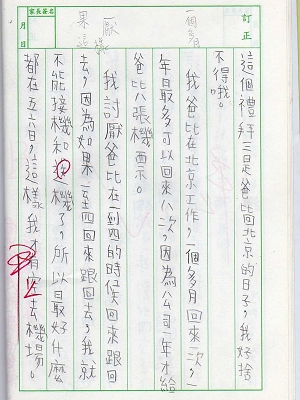 訂正
一個多
這個禮拜三日是爸比回北京的日子，我好捨
不得哦。
我爸比在北京工作，一個多月回來一次，一
年最多可以回來八次，因為公司一年才給
爸比八張機票。
我討厭爸比在一到四的時候回來跟回
去，因為如果一至四回來跟回去，我就
不能接機和送機了，所以最好什麼
都在五六日，這樣我才有空去機場。
家長簽名
月 日